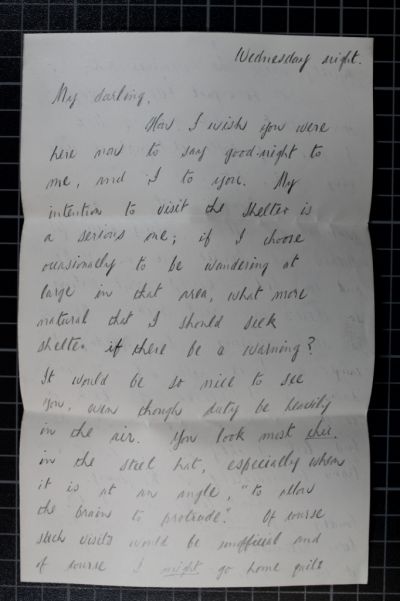 Wednesday night.
My darling,
How I wish you were
here now to say good-night to
me, and I to you. My
intention to visit the shelter is
a serious one; if I choose
occasionally to be wandering at
large in that area, what more
natural that I should seek
shelter if there be a warning?
It would be so nice to see
you, even though duty be heavily
in the air. You look most chic.
in the steel hat, especially when
it is at an angle, "to allow
the brains to protrude". Of course
such visits would be unofficial and
of course I might go home quite